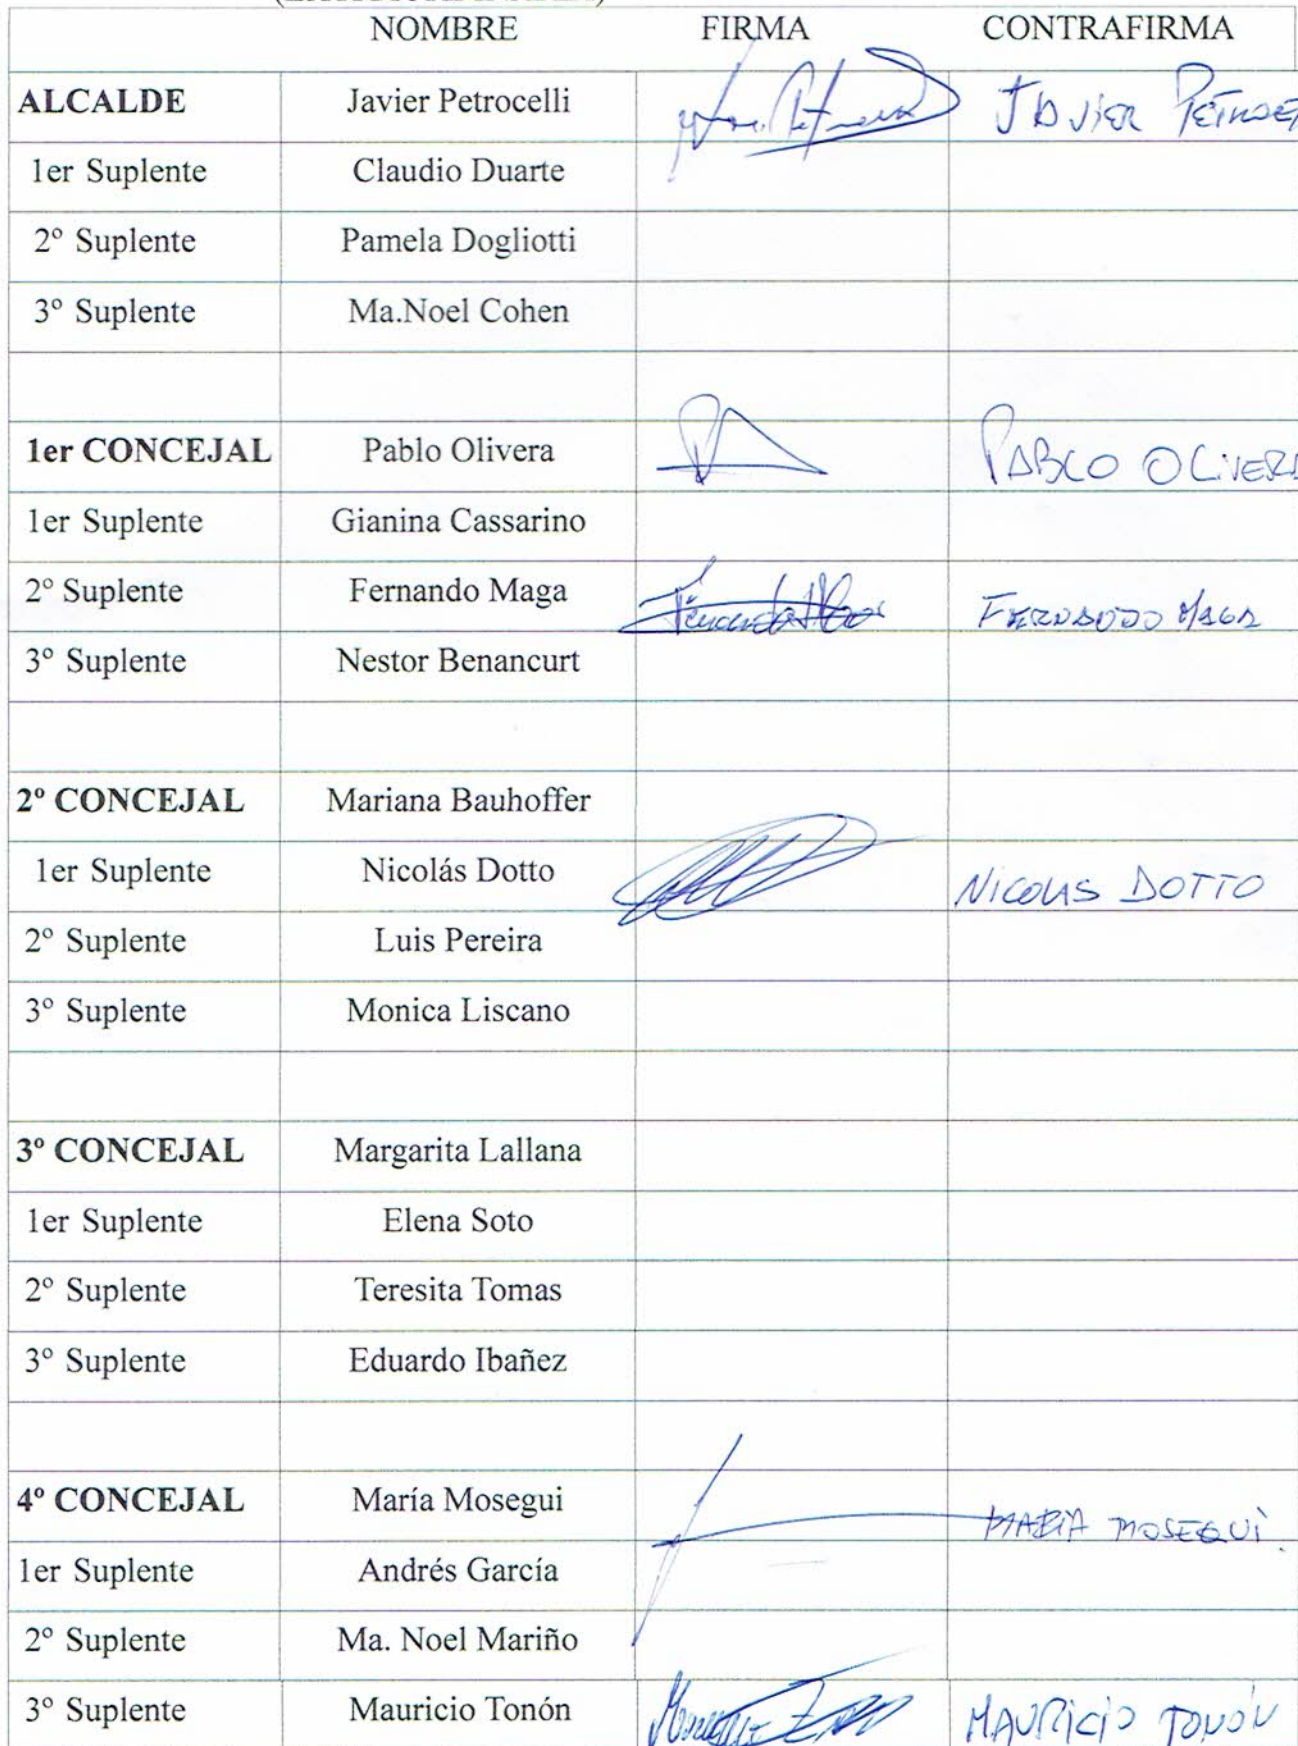 NOMBRE FIRMA CONTRAFIRMA
ALCALDE Javier Petrocelli JAVIER
1er Suplente Claudio Duarte
2º Suplente Pamela Dogliotti
3º Suplente Ma.Noel Cohen
1er CONCEJAL Pablo Olivera PABLO OLIVERA
1er Suplente Gianina Cassarino
2º Suplente Fernando Maga FERNANDO MAGA
3º Suplente Nestor Benancurt
2º CONCEJAL Mariana Bauhoffer
1er Suplente Nicolás Dotto NICOLAS DOTTO
2º Suplente Luis Pereira
3º Suplente Monica Liscano
3º CONCEJAL Margarita Lallana
1er Suplente Elena Soto
2º Suplente Teresita Tomas
3º Suplente Eduardo Ibañez
4º CONCEJAL María Mosegui MARIA MOSEGUI
1er Suplente Andrés García
2º Suplente Ma. Noel Mariño
3º Suplente Mauricio Tonón MAURICIO TONÓN